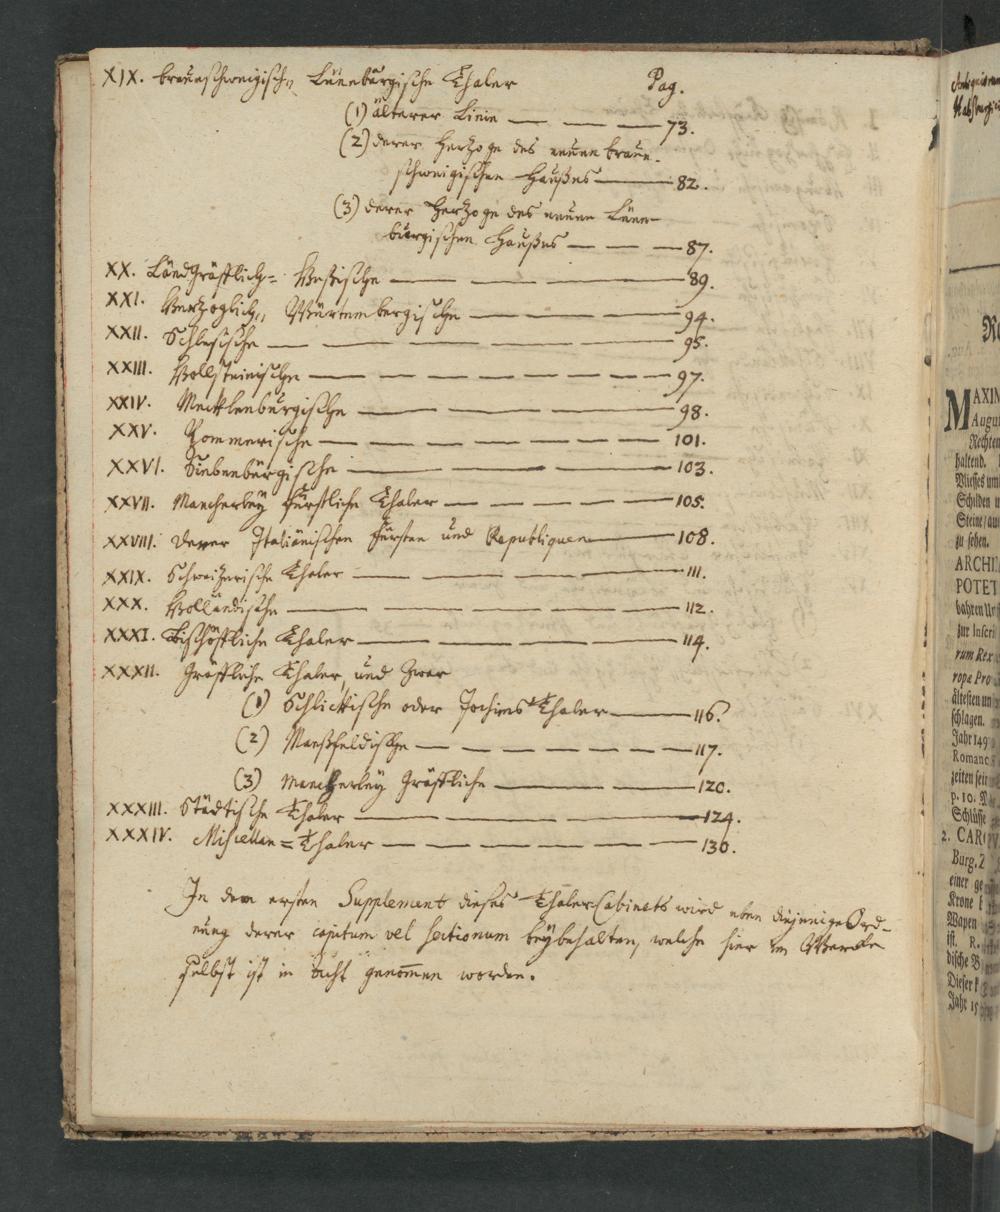 XIX. Braunschweigisch„ Lüneburgische Thaler Pag.
(1) älterer Linie — — — 73.
(2) derer Hertzoge des neuen braun-
schweigischen Haußes — 82.
(3) derer Hertzoge des neuen Lüne-
burgischen Haußes — — — 87.
XX. Landgräfflich= Heßische — — — 89.
XXI. Hertzoglich„ Würtembergische — — — 94.
XXII. Schlesische — — — — — 95.
XXIII. Hollsteinische — — — — — 97.
XXIV. Mecklenburgische — — — — 98.
XXV. Pommerische — — — — — 101.
XXVI. Siebenbürgische — — — 103.
XXVII. Mancherley fürstliche Thaler — — — 105.
XXVIII. Derer Italiänischen Fürsten und Republiquen — 108.
XXIX. Schweitzerische Thaler — — — 111.
XXX. Holländische — — — — — 112.
XXXI. Bischöffliche Thaler — — — 114.
XXXII. Gräffliche Thaler, und zwar
(1) Schlickische oder Jochims Thaler — 116.
(2) Manßfeldische — — — — — 117.
(3) Mancherley Gräffliche — — 120.
XXXIII. Städtische Thaler — — — 124.
XXXIV. Miscellan = Thaler — — — — 130.
In dem ersten Supplement dieses Thaler-Cabinets wird eben diejenige Ord-
nung derer capitum vel sectionum beybehalten, welche hier im Wercke
selbst ist in acht genommen worden.
MAXIM
Augu
Rechten
haltend.
Vliesses um
Schilden
Steine/au
zu sehen.
ARCHI
POTET
bahren Urs
zur Inscri
rum Rex
ropæ Pro
ältesten un
schlagen.
Jahr 149
Romano
zeiten seit
p. 10.
Schlüsse
2. CARO
Burg. Z
einer ge
Krone
Wapen
ist. R.
dische B
Dieser
Jahr 15